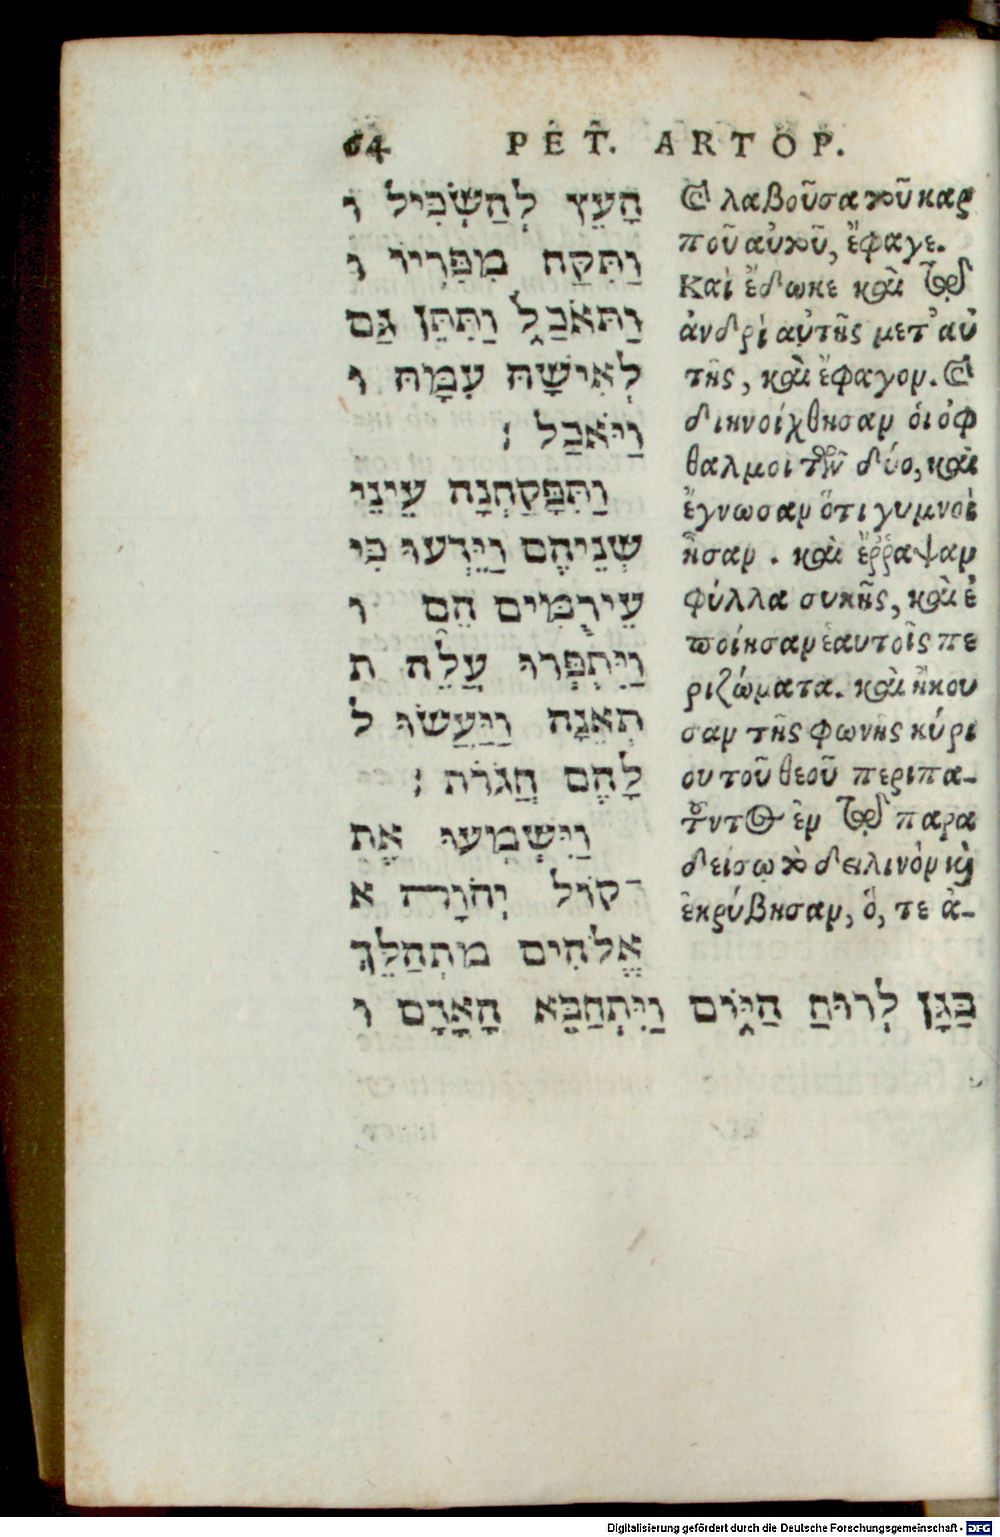 64 PET. ARTOP.
הָעֵץ לְהַשְׂכִּיל ו
וַתִּקַּח מִפִּרְיוֹ ו
וַתֹּאכַל וַתִּתֵּן גַּם
לְאִישָׁהּ עִמָּהּ ו
וַיֹּאכַל :
וַתִּפָּקַחְנָה עֵינֵי
שְׁנֵיהֶם וַיֵּדְעוּ כִּי
עֵירֻמִּים הֵם ו
וַיִּתְפְּרוּ עֲלֵה ת
תְאֵנָה וַיַּעֲשׂוּ ל
לָהֶם חֲגֹרֹת :
וַיִּשְׁמְעוּ אֶת
קוֹל יְהֹוָה א
אֱלֹהִים מִתְהַלֵּךְ
בַּגָּן לְרוּחַ הַיּוֹם וַיִּתְחַבֵּא הָאָדָם ו
καὶ λαβοῦσα τοῦ καρ
ποῦ αὐτοῦ, ἔφαγε.
Καὶ ἔδωκε καὶ τῷ
ἀνδρὶ αὐτῆς μετ᾽ αὐ
τῆς, καὶ ἔφαγον. καὶ
διηνοίχθησαν οἱ ὀφ
θαλμοὶ τῶν δύο, καὶ
ἔγνωσαν ὅτι γυμνοὶ
ἦσαν. καὶ ἔῤῥαψαν
φύλλα συκῆς, καὶ ἐ
ποίησαν ἑαυτοῖς πε
ριζώματα. καὶ ἤκου
σαν τῆς φωνῆς κύρι
ου τοῦ θεοῦ περιπα-
τοῦντος ἐν τῷ παρα
δείσῳ τὸ δειλινὸν καὶ
ἐκρύβησαν, ὅ, τε ἀ-
Digitalisierung gefördert durch die Deutsche Forschungsgemeinschaft - DFG